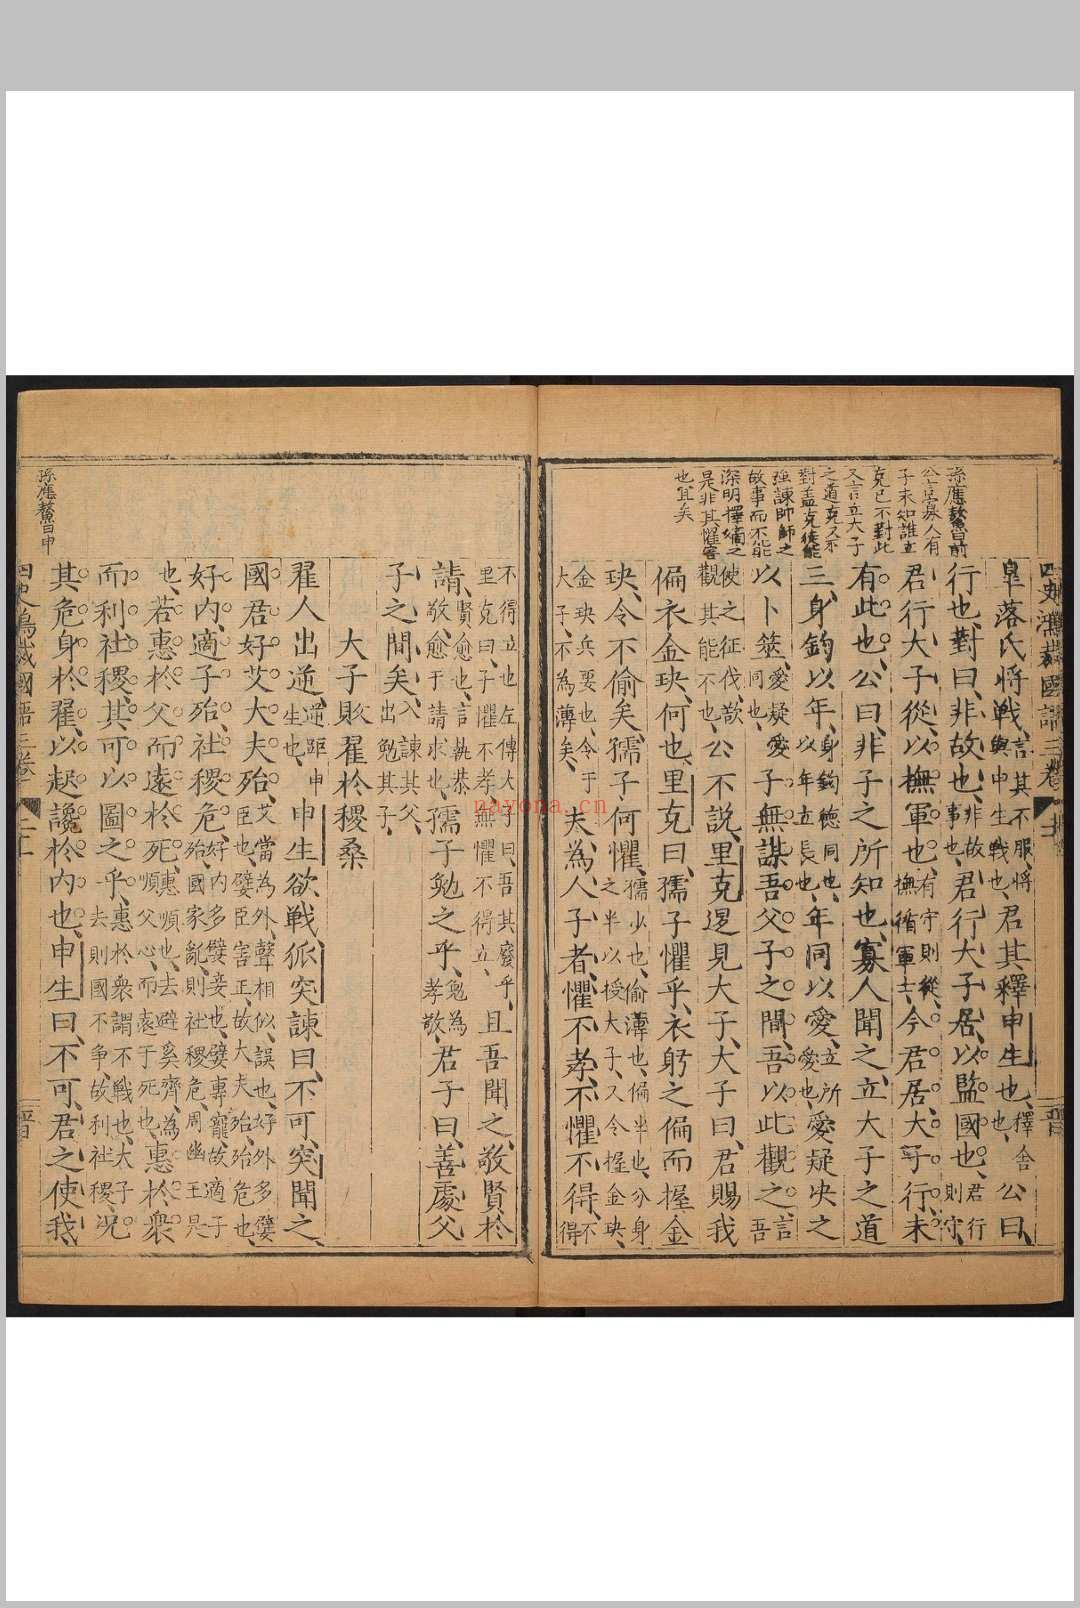 孫應鰲曰前
公言寡人有
子未知誰立
克已不對此
又言立大子
之道克又不
對孟克徒能
強諫師師之
故事而不能
深明擇嫡之
是非其懼害
也宜矣
四史鴻裁國語三卷
晉
皐落氏將戰、言其不服、將與申生戰也、君其釋申生也、釋舍也、公曰、
行也、對曰、非故也、非故事也、君行大子居、以監國也、君行則守、
君行大子從、以撫軍也、有守則從、撫循軍士、今君居大子行、未
有此也、公曰、非子之所知也、寡人聞之、立大子之道
三、身鈞以年、身鈞德同也、以年立長也、年同以愛、立所愛也、愛疑决之
以卜筮、愛疑愛同也、子無謀吾父子之間、吾以此觀之、言吾
使之征伐欲觀其能不也、公不說、里克退見大子、大子曰、君賜我
偏衣金玦、何也、里克曰、孺子懼乎、衣躬之偏而握金
玦、令不偷矣、孺子何懼、孺少也、偷薄也、偏半也、分身之半以授大子、又令握金玦、
金玦兵要也、令于大子、不為薄矣、夫為人子者、懼不孝、不懼不得、不得
不得立也、左傳大子曰、吾其廢乎、里克曰、子懼不孝、無懼不得立、且吾聞之、敬賢於
請、賢愈也、言執恭敬愈于請求也、孺子勉之乎、勉為孝敬、君子曰、善處父
子之間矣、入諫其父、出勉其子、
大子敗翟於稷桑
翟人出逆、逆距申生也、申生欲戰、狐突諫曰、不可、突聞之、
國君好艾、大夫殆、艾當為外、聲相似、誤也、好外多嬖臣也、嬖臣害正、故大夫殆、殆危也、
好內、適子殆、社稷危、好內多嬖妾也、嬖專寵、故適子殆、國家亂、則社稷危、周幽王是
也、若惠於父而遠於死、惠順也、去避奚齊、為順父心、而遠于死也、惠於衆
而利社稷、其可以圖之乎、惠於衆、謂不戰也、大子去則國不争、故利社稷、况
其危身於翟、以起讒於內也、申生曰、不可、君之使我、
四史鴻裁國語三卷
晉
孫應鰲曰申
nayona.cn